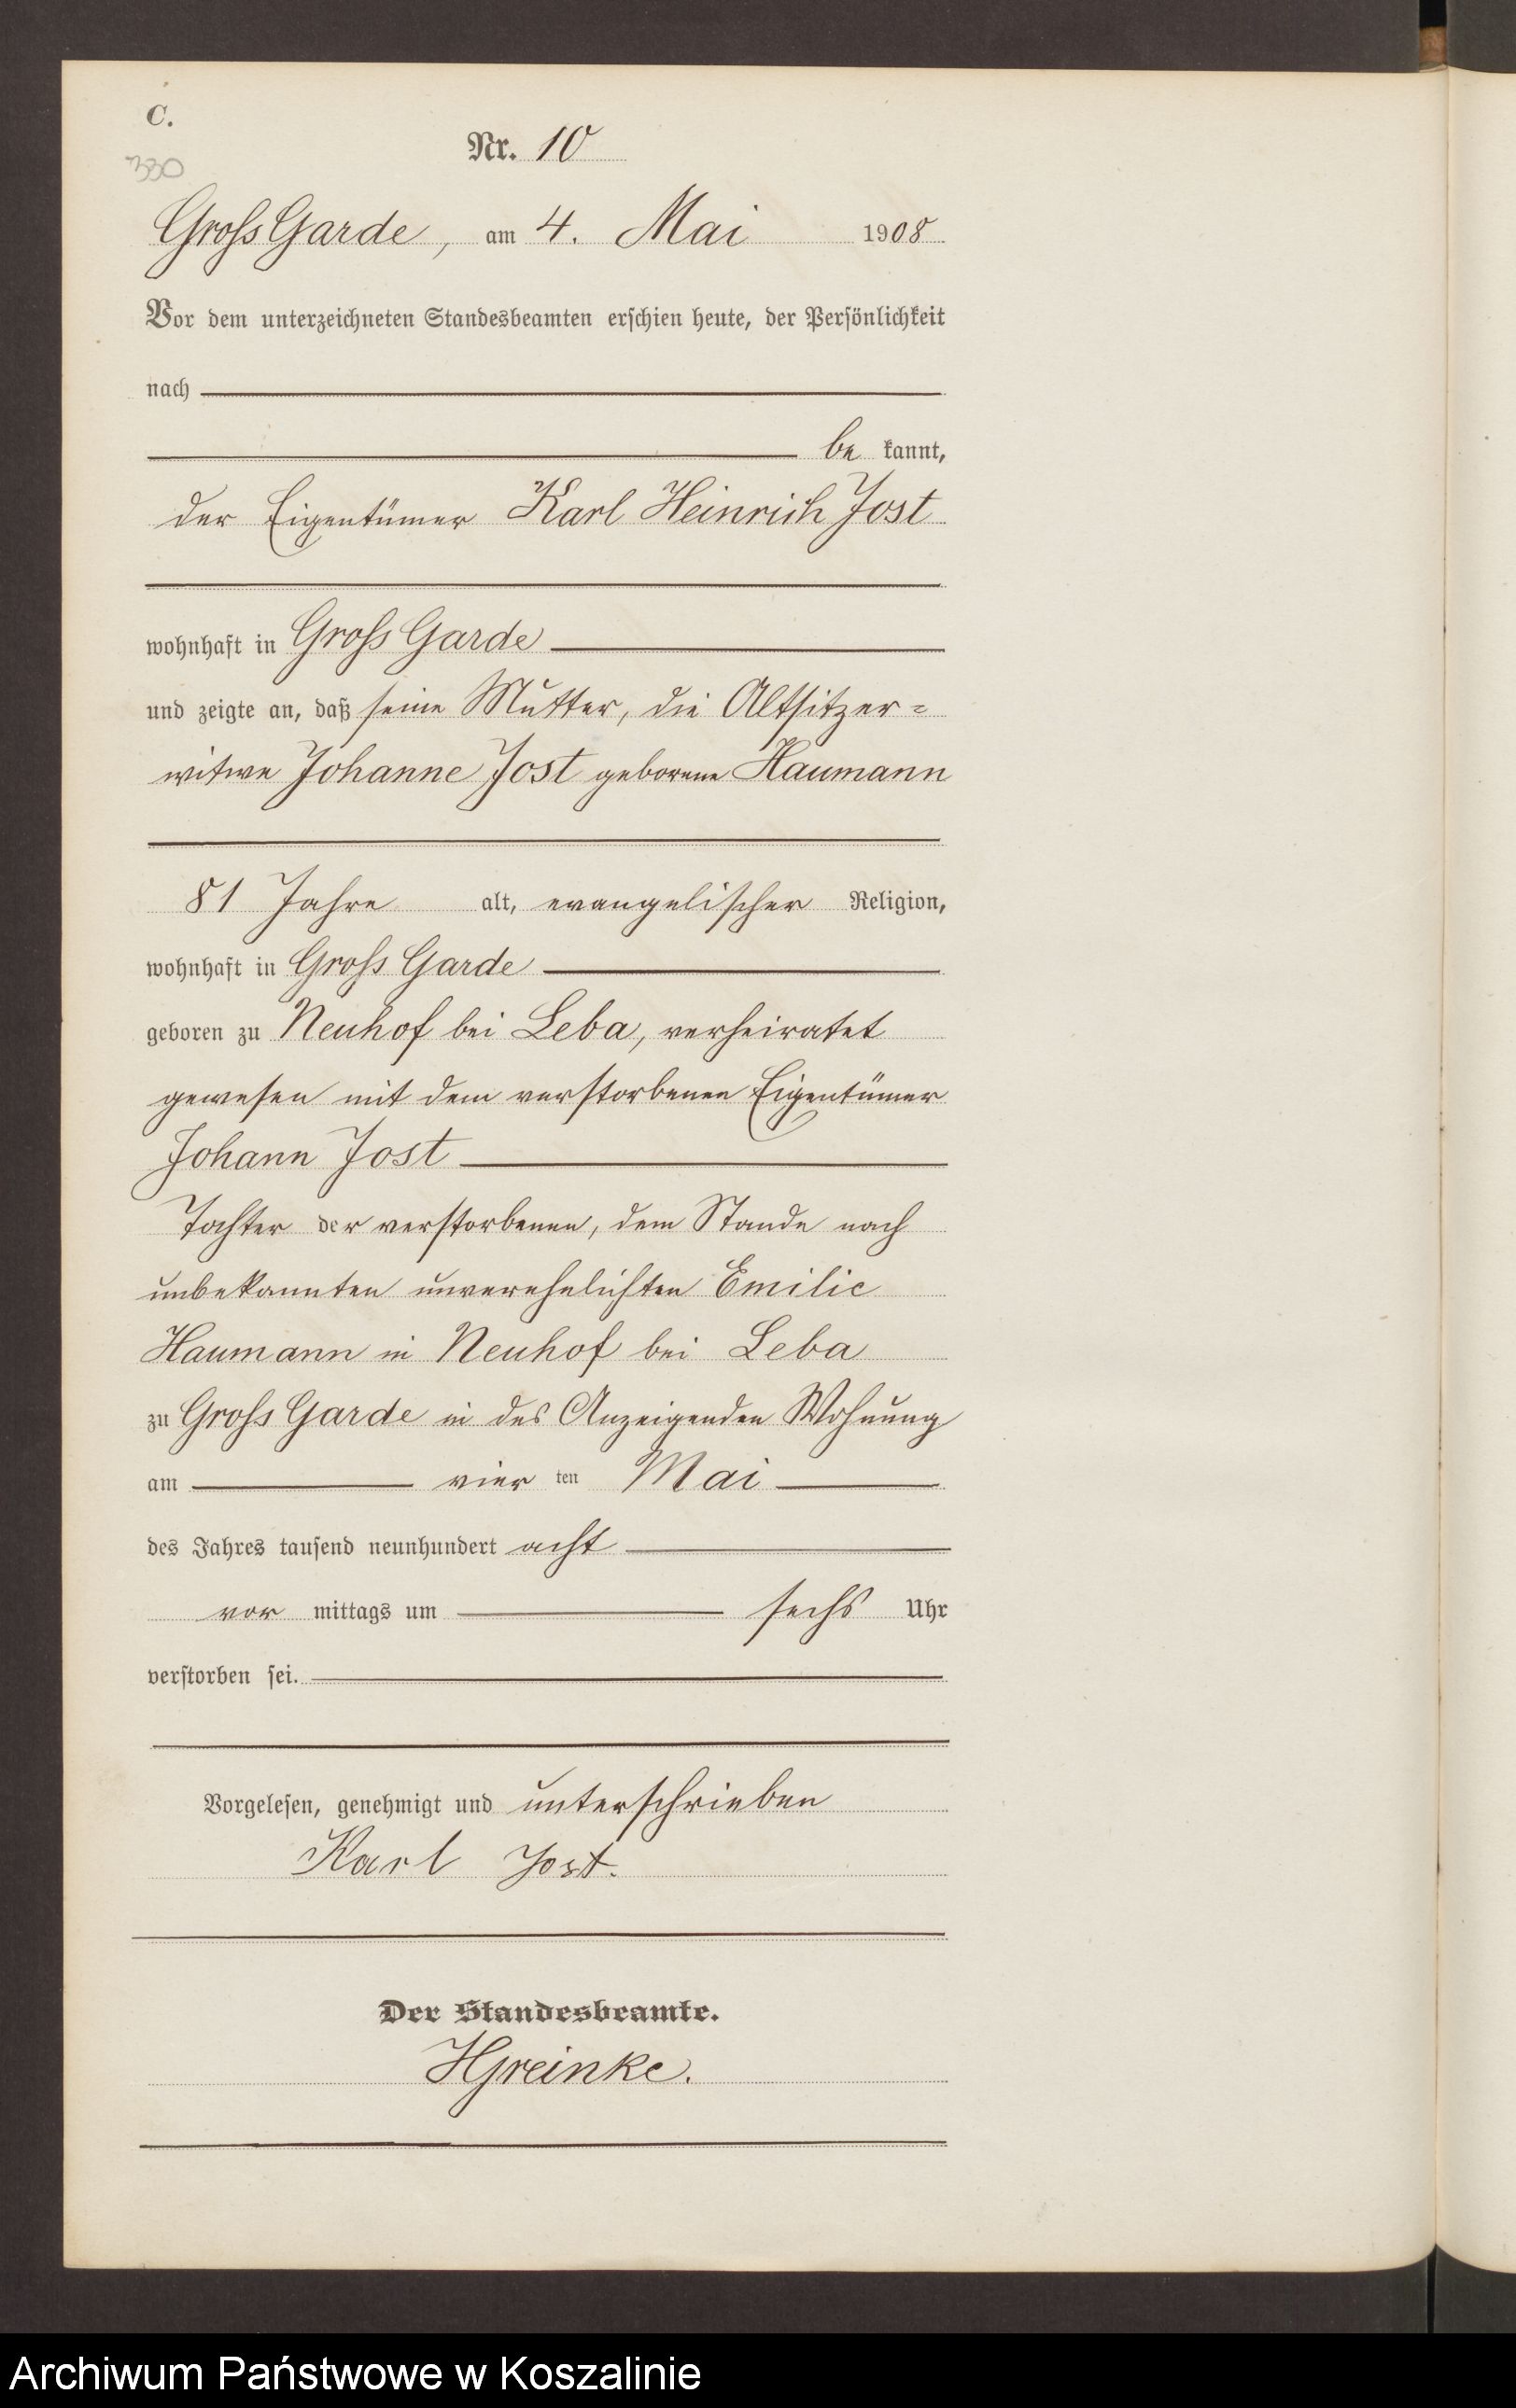 C.
330
Nr. 10
Gross Garde, am 4. Mai 1908
Vor dem unterzeichneten Standesbeamten erschien heute, der Persönlichkeit
nach
be kannt,
der Eigentümer Karl Heinrich Jost
wohnhaft in Gross Garde
und zeigte an, daß seine Mutter, die Altsitzer=
witwe Johanne Jost geborene Haumann
81 Jahre alt, evangelischer Religion,
wohnhaft in Gross Garde
geboren zu Neuhof bei Leba, verheiratet
gewesen mit dem verstorbenen Eigentümer
Johann Jost
Tochter der verstorbenen, dem Stande nach
unbekannten unverehelichten Emilie
Haumann in Neuhof bei Leba
zu Gross Garde in des Anzeigenden Wohnung
am vier ten Mai
des Jahres tausend neunhundert acht
vor mittags um sechs Uhr
verstorben sei.
Vorgelesen, genehmigt und unterschrieben
Karl Jost.
Der Standesbeamte.
Archiwum Państwowe w Koszalinie